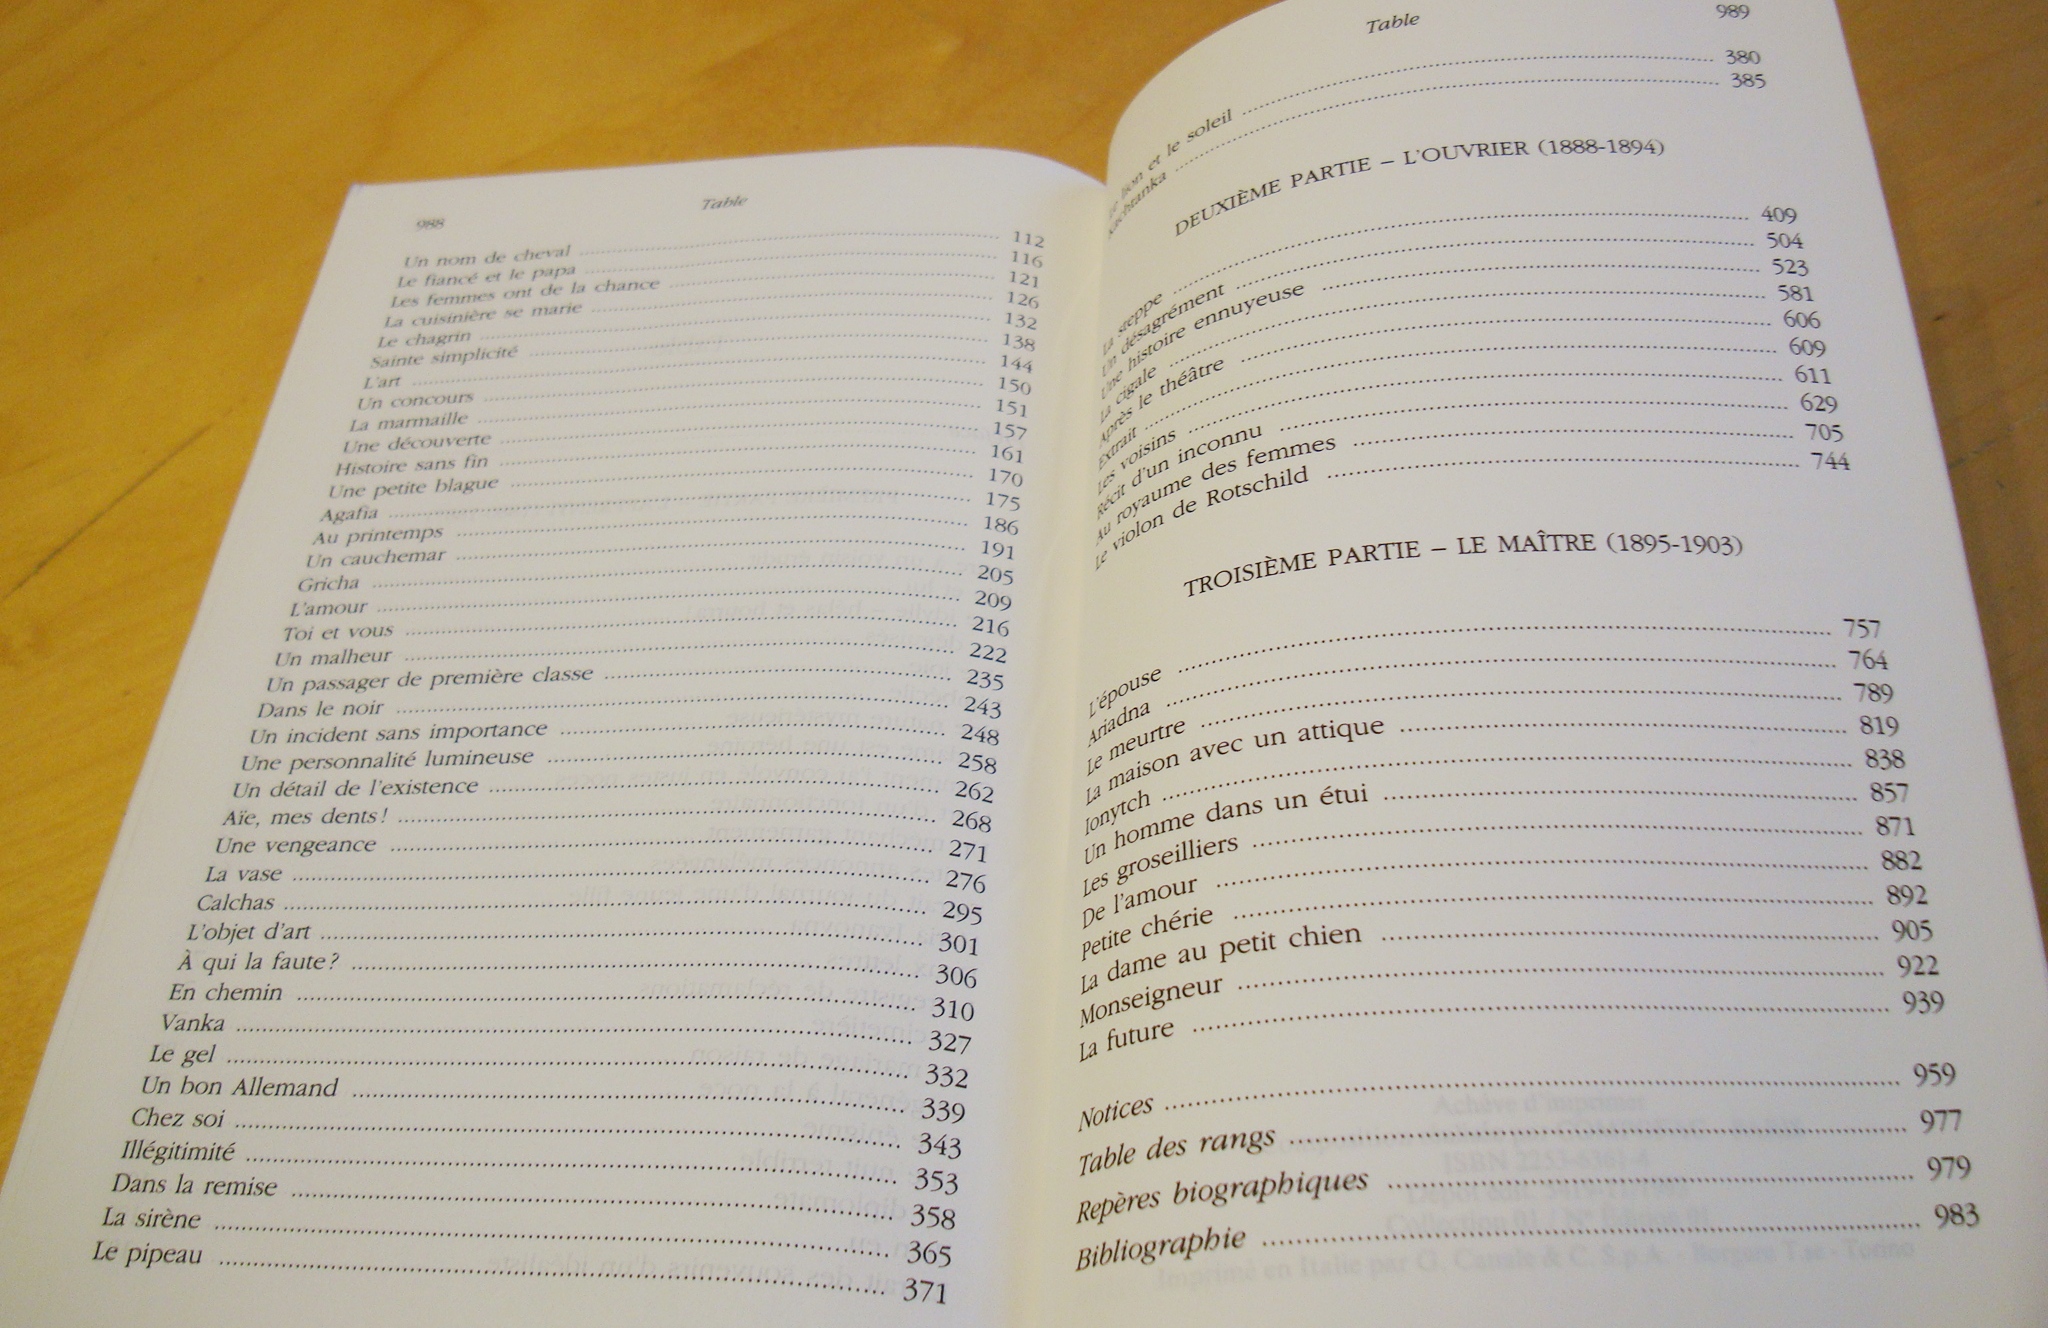 988 Table
Un nom de cheval 112
Le fiancé et le papa 116
Les femmes ont de la chance 121
La cuisinière se marie 126
Le chagrin 132
Sainte simplicité 138
L'art 144
Un concours 150
La marmaille 151
Une découverte 157
Histoire sans fin 161
Une petite blague 170
Agafia 175
Au printemps 186
Un cauchemar 191
Gricha 205
L'amour 209
Toi et vous 216
Un malheur 222
Un passager de première classe 235
Dans le noir 243
Un incident sans importance 248
Une personnalité lumineuse 258
Un détail de l'existence 262
Aïe, mes dents ! 268
Une vengeance 271
La vase 276
Calchas 295
L'objet d'art 301
À qui la faute ? 306
En chemin 310
Vanka 327
Le gel 332
Un bon Allemand 339
Chez soi 343
Illégitimité 353
Dans la remise 358
La sirène 365
Le pipeau 371
Table 989
Le lion et le soleil 380
Kachtanka 385
DEUXIÈME PARTIE – L'OUVRIER (1888-1894)
La steppe 409
Un désagrément 504
Une histoire ennuyeuse 523
La cigale 581
Après le théâtre 606
Extrait 609
Les voisins 611
Récit d'un inconnu 629
Au royaume des femmes 705
Le violon de Rotschild 744
TROISIÈME PARTIE – LE MAÎTRE (1895-1903)
L'épouse 757
Ariadna 764
Le meurtre 789
La maison avec un attique 819
Ionytch 838
Un homme dans un étui 857
Les groseilliers 871
De l'amour 882
Petite chérie 892
La dame au petit chien 905
Monseigneur 922
La future 939
Notices 959
Table des rangs 977
Repères biographiques 979
Bibliographie 983